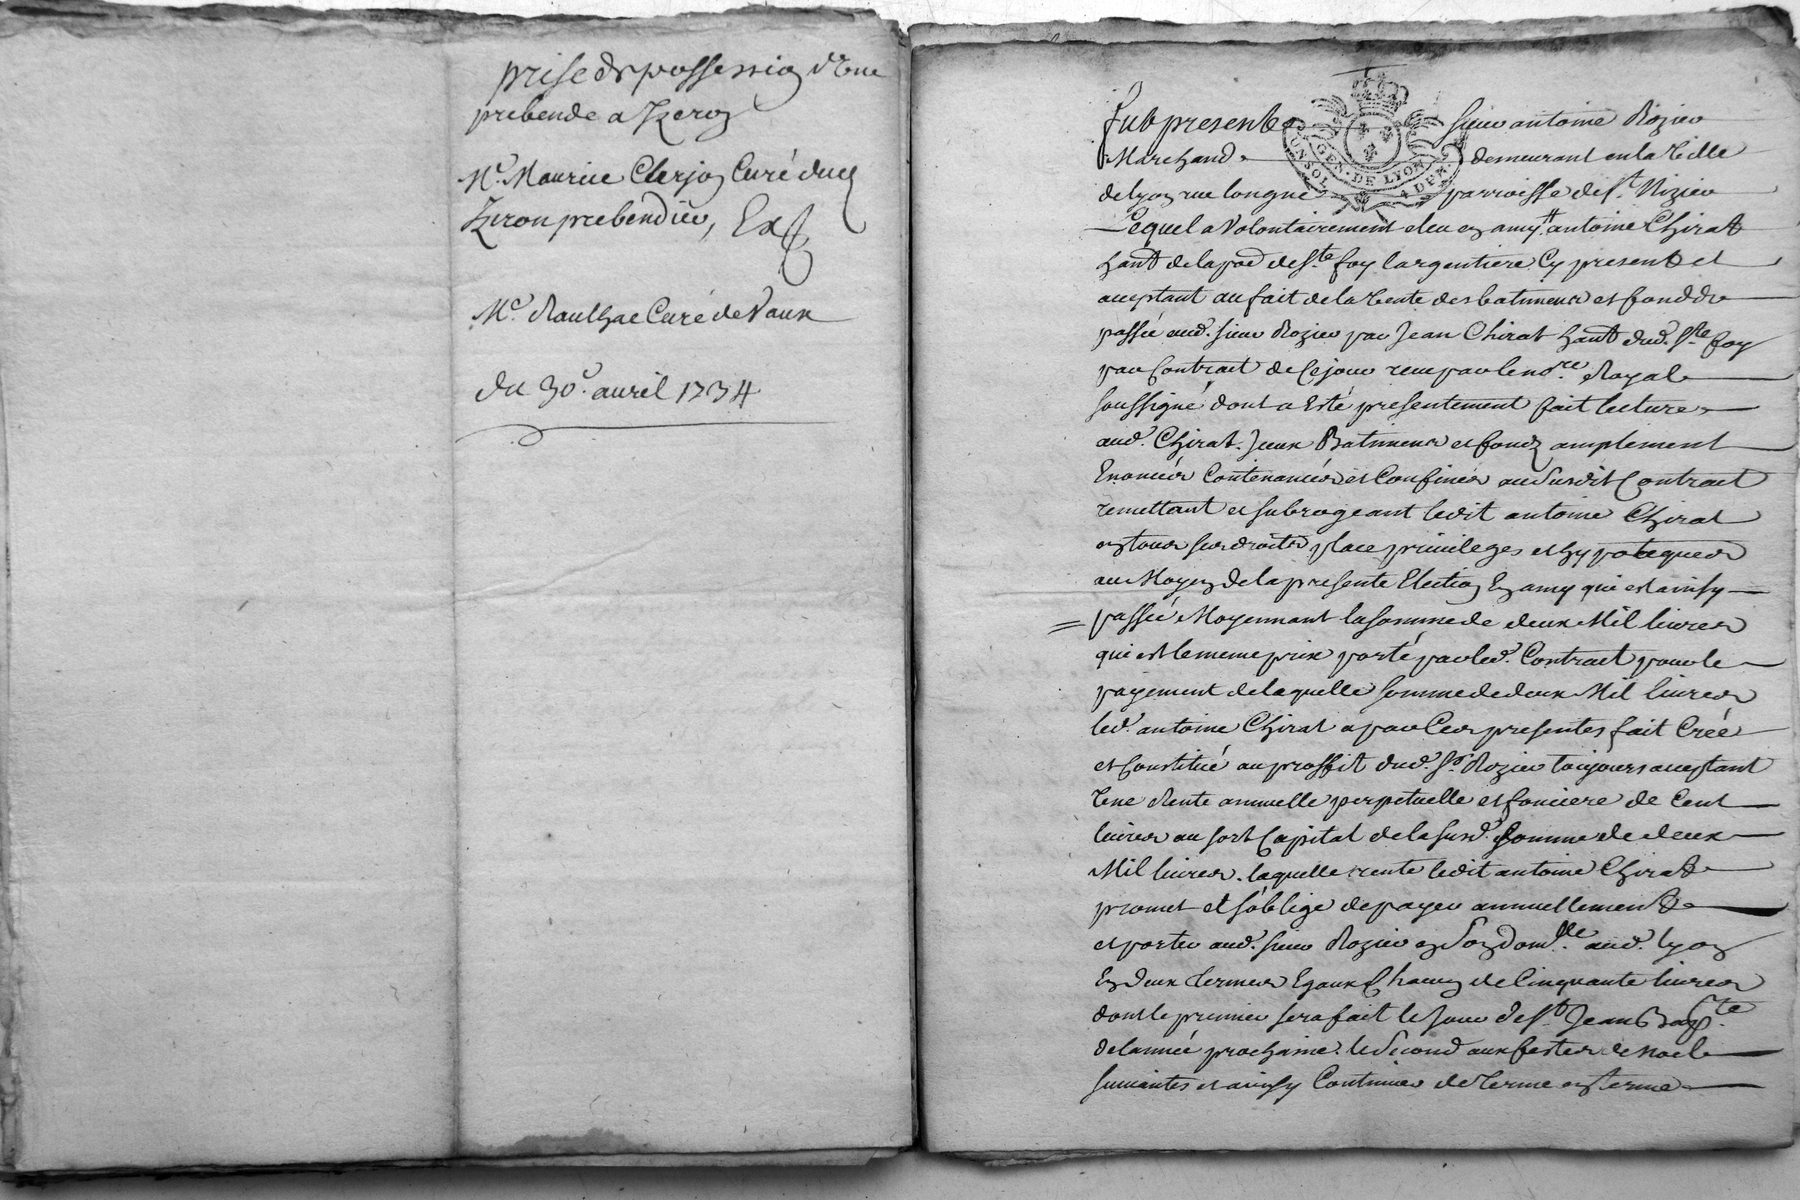 prise de possession d'une
prebende a Izeron
Mre. Maurice Clerjon Curé dud
Izeron prebendier, Exp
Me. Raulhac Curé de Vaux
du 30e. avril 1734
GEN. DE LYON
4 DEN.
fut present sieur antoine Rozier
Marchand demeurant en la Ville
de Lyon rue longue parroisse de st. Nizier
Lequel a Volontairement eleu en amy antoine Chirat
habt de la parr de ste. foy largentiere Cy present et
acceptant au fait de la Vente des batimens et fondz
passée aud. sieur Rozier par Jean Chirat habt dud. ste foy
par Contract de Ce jour receu par le nore. Royal
soussigné dont a Esté presentement fait lecture
aud. Chirat. Iceux Batimens et fondz amplement
Enoncés Contenancés et Confinés au susdit Contract
remettant et subrogeant ledit antoine Chirat
en tous ses droits place privileges et hypoteques
au Moyen de la presente Election En amy qui est ainsy
passée Moyennant la somme de deux Mil livres
qui est le meme prix porté par led. Contract pour le
payement de laquelle somme de deux Mil livres
led. antoine Chirat a par Ces presentes fait Créé
et Constitué au proffit dud. sr. Rozier toujours acceptant
Une Rente annuelle perpetuelle et fonciere de Cent
livres au sort Capital de la susd. somme de deux
Mil livres. laquelle rente ledit antoine Chirat
promet et s'oblige de payer annuellement
et porter aud. sieur Rozier en son domlle. aud. Lyon
En deux termes Egaux Chacun de Cinquante livres
dont le premier sera fait le Jour de st. Jean Bapte.
de lannée prochaine. le second aux festes de noel
suivantes et ainsy Continuer de terme en terme